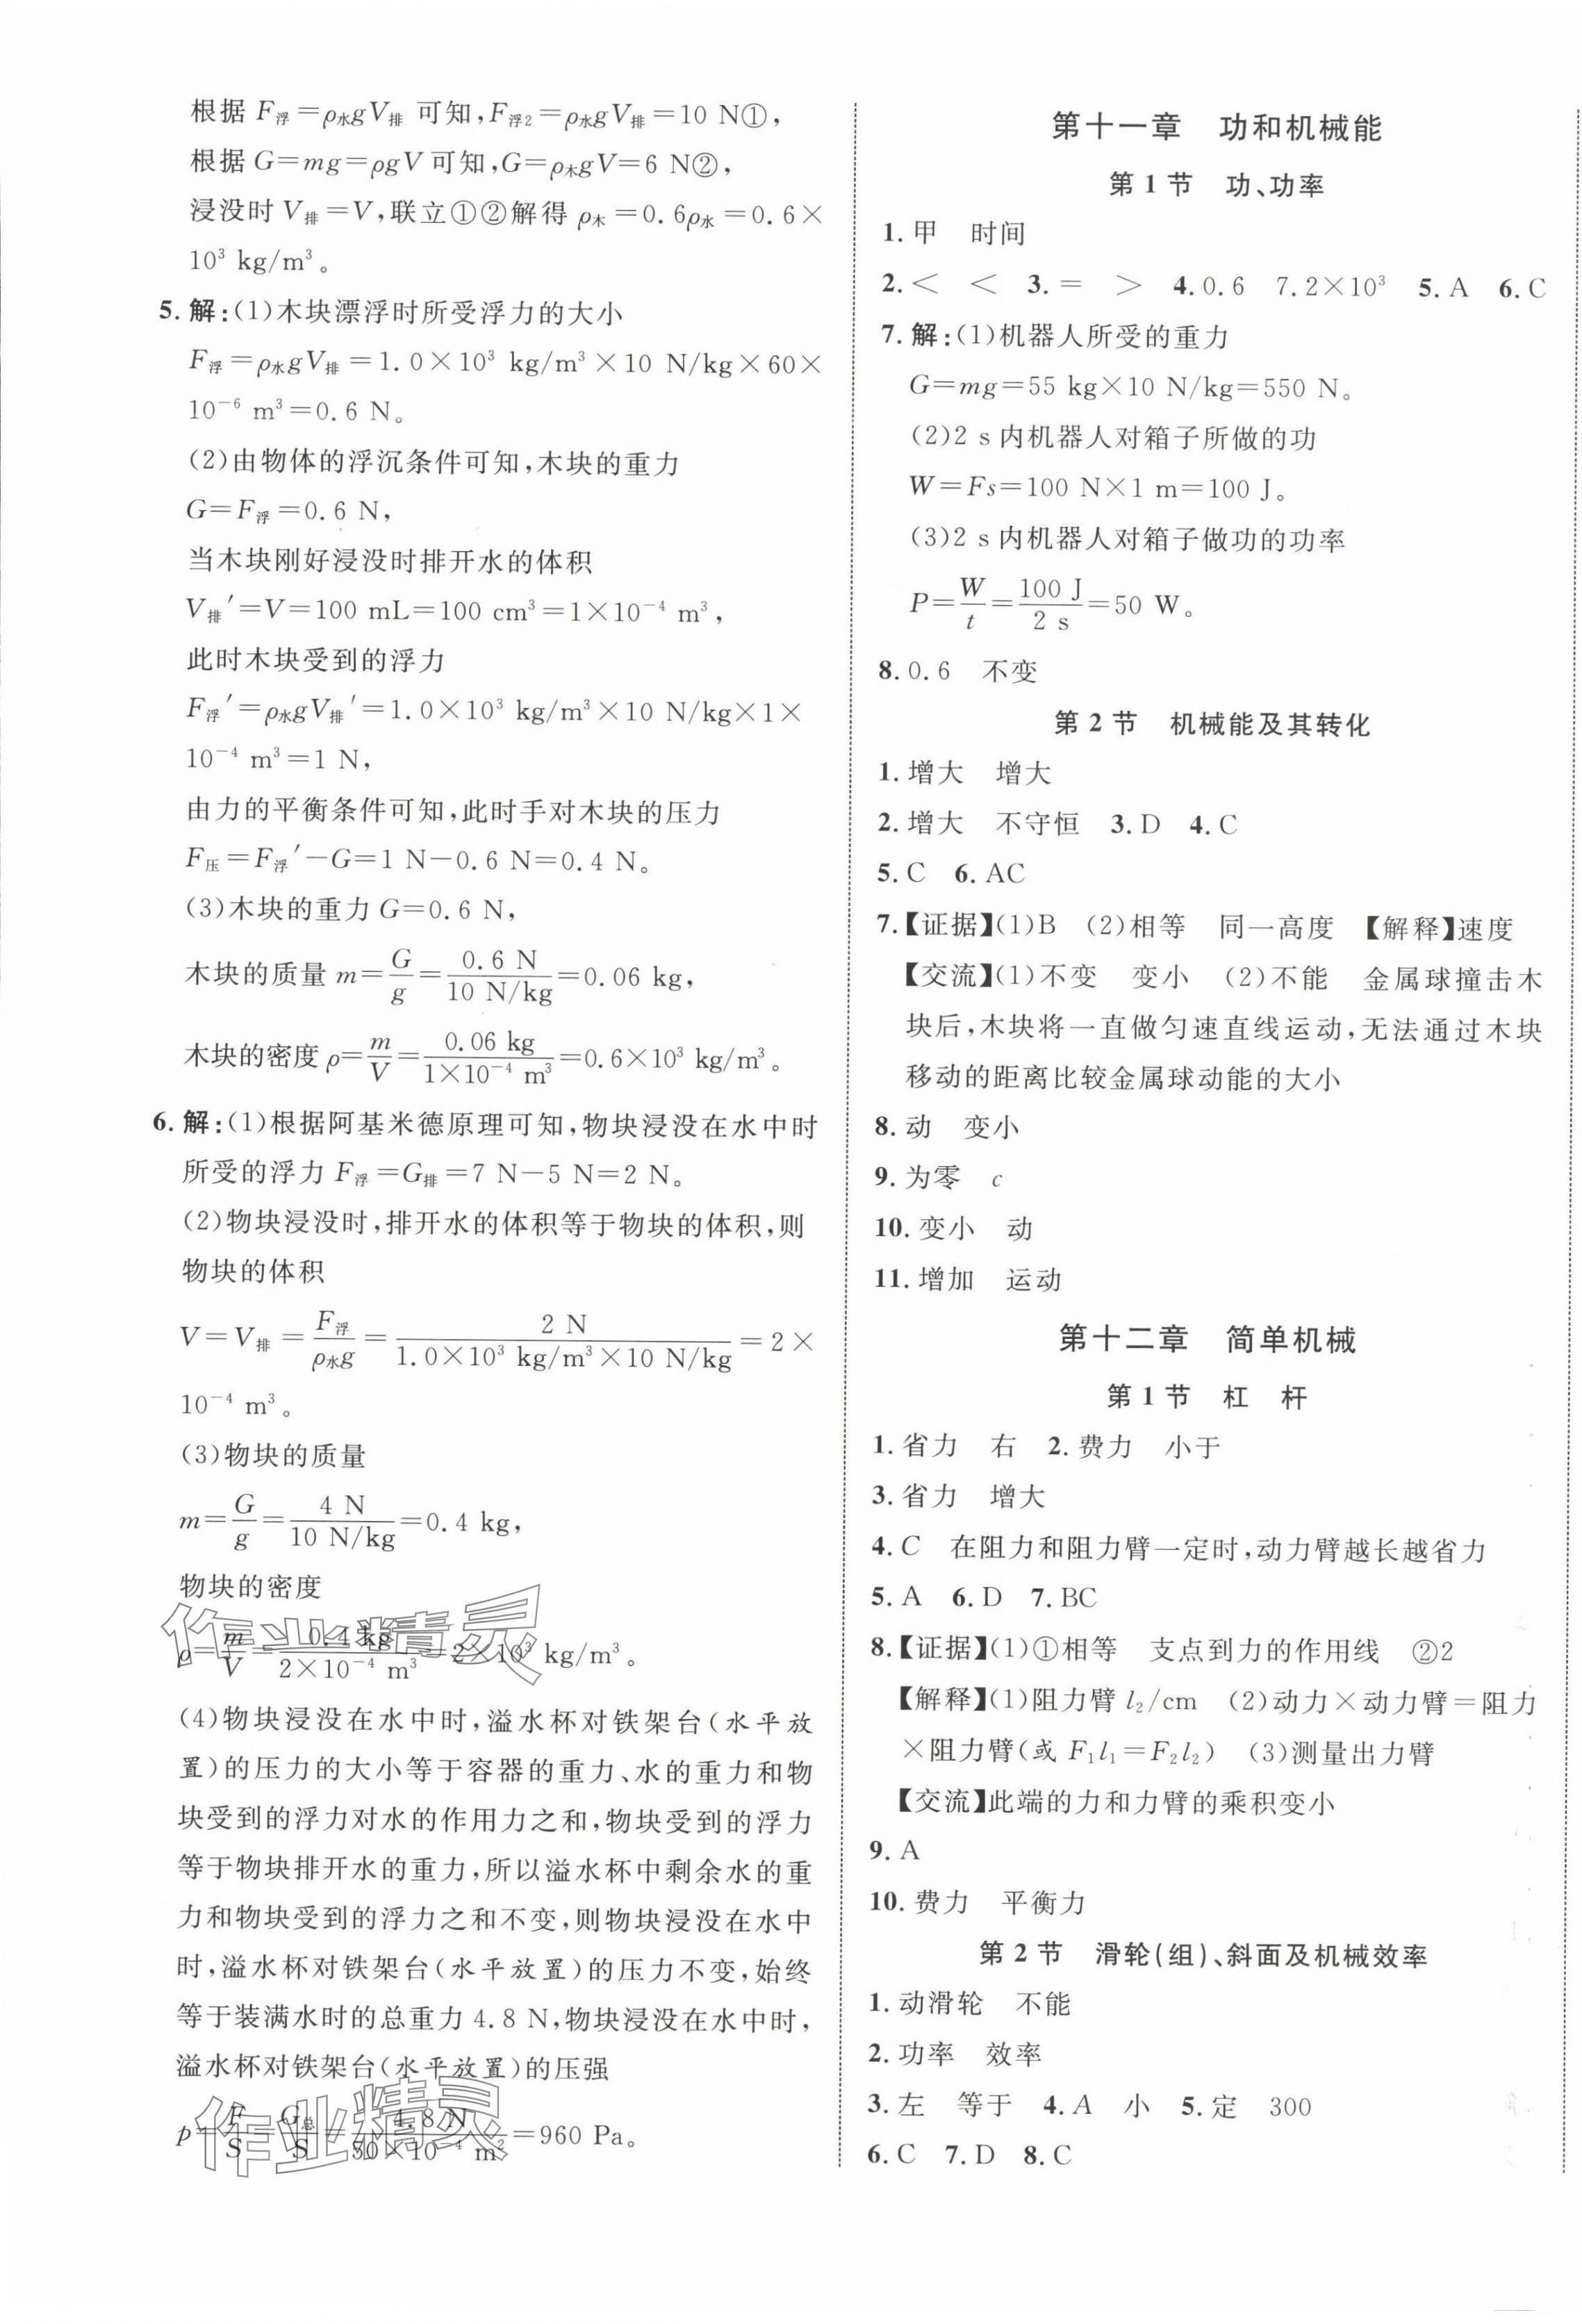 根据 F浮=ρ水gV排 可知,F浮2=ρ水gV排=10 N①,
根据 G=mg=ρgV 可知,G=ρ木gV=6 N②,
浸没时 V排=V,联立①②解得 ρ木=0.6ρ水=0.6×
10³ kg/m³。
5. 解:(1)木块漂浮时所受浮力的大小
F浮=ρ水gV排=1.0×10³ kg/m³×10 N/kg×60×
10⁻⁶ m³=0.6 N。
(2)由物体的浮沉条件可知,木块的重力
G=F浮=0.6 N,
当木块刚好浸没时排开水的体积
V排′=V=100 mL=100 cm³=1×10⁻⁴ m³,
此时木块受到的浮力
F浮′=ρ水gV排′=1.0×10³ kg/m³×10 N/kg×1×
10⁻⁴ m³=1 N,
由力的平衡条件可知,此时手对木块的压力
F压=F浮′-G=1 N-0.6 N=0.4 N。
(3)木块的重力 G=0.6 N,
木块的质量 m=G/g=0.6 N/10 N/kg=0.06 kg,
木块的密度 ρ=m/V=0.06 kg/1×10⁻⁴ m³=0.6×10³ kg/m³。
6. 解:(1)根据阿基米德原理可知,物块浸没在水中时
所受的浮力 F浮=G排=7 N-5 N=2 N。
(2)物块浸没时,排开水的体积等于物块的体积,则
物块的体积
V=V排=F浮/ρ水g=2 N/1.0×10³ kg/m³×10 N/kg=2×
10⁻⁴ m³。
(3)物块的质量
m=G/g=4 N/10 N/kg=0.4 kg,
物块的密度
ρ=m/V=0.4 kg/2×10⁻⁴ m³=2×10³ kg/m³。
作业精灵
(4)物块浸没在水中时,溢水杯对铁架台(水平放
置)的压力的大小等于容器的重力、水的重力和物
块受到的浮力对水的作用力之和,物块受到的浮力
等于物块排开水的重力,所以溢水杯中剩余水的重
力和物块受到的浮力之和不变,则物块浸没在水中
时,溢水杯对铁架台(水平放置)的压力不变,始终
等于装满水时的总重力 4.8 N,物块浸没在水中时,
溢水杯对铁架台(水平放置)的压强
p=F/S=G总/S=4.8 N/50×10⁻⁴ m²=960 Pa。
作业精灵
第十一章 功和机械能
第 1 节 功、功率
1. 甲 时间
2. < < 3. = > 4. 0.6 7.2×10³ 5. A 6. C
7. 解:(1)机器人所受的重力
G=mg=55 kg×10 N/kg=550 N。
(2)2 s 内机器人对箱子所做的功
W=Fs=100 N×1 m=100 J。
(3)2 s 内机器人对箱子做功的功率
P=W/t=100 J/2 s=50 W。
8. 0.6 不变
第 2 节 机械能及其转化
1. 增大 增大
2. 增大 不守恒 3. D 4. C
5. C 6. AC
7.【证据】(1)B (2)相等 同一高度 【解释】速度
【交流】(1)不变 变小 (2)不能 金属球撞击木
块后,木块将一直做匀速直线运动,无法通过木块
移动的距离比较金属球动能的大小
8. 动 变小
9. 为零 c
10. 变小 动
11. 增加 运动
第十二章 简单机械
第 1 节 杠 杆
1. 省力 右 2. 费力 小于
3. 省力 增大
4. C 在阻力和阻力臂一定时,动力臂越长越省力
5. A 6. D 7. BC
8.【证据】(1)①相等 支点到力的作用线 ②2
【解释】(1)阻力臂 l₂/cm (2)动力×动力臂=阻力
×阻力臂(或 F₁l₁=F₂l₂) (3)测量出力臂
【交流】此端的力和力臂的乘积变小
9. A
10. 费力 平衡力
第 2 节 滑轮(组)、斜面及机械效率
1. 动滑轮 不能
2. 功率 效率
3. 左 等于 4. A 小 5. 定 300
6. C 7. D 8. C